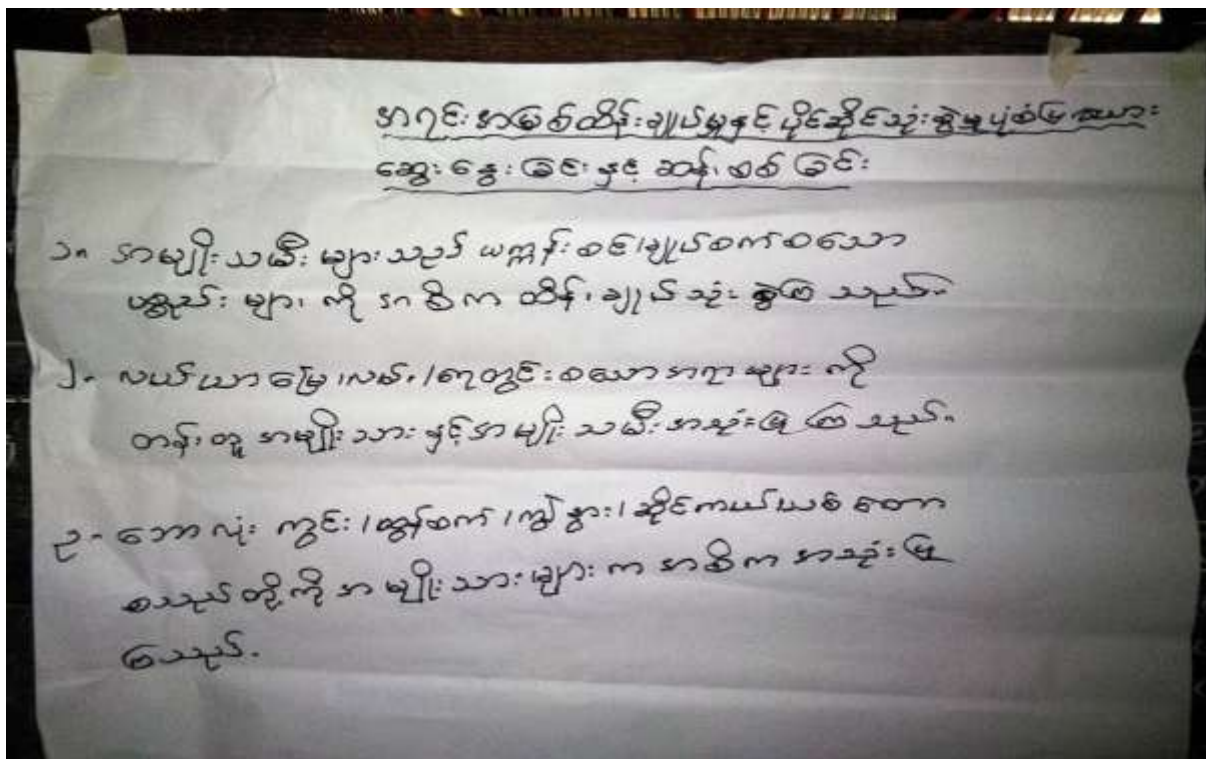 အရင်းအမြစ်ထိန်းချုပ်မှုနှင့် ပိုင်ဆိုင်သုံးစွဲမှုပုံစံမြေ
ဆွေးနွေးခြင်းနှင့် ဆန်းစစ်ခြင်း
၁။ အမျိုးသမီးများသည် ယက္ကန်းစင်/ချုပ်စက်စသော
ပစ္စည်းများကို အဓိက ထိန်းချုပ်သုံးစွဲကြသည်။
၂။ လယ်ယာမြေ/လမ်း/ရေတွင်းစသောအရာများကို
တန်းတူ အမျိုးသားနှင့်အမျိုးသမီးအသုံးပြုကြသည်။
၃။ ဘောလုံးကွင်း/ထွန်စက်/ကျွဲနွား/ဆိုင်ကယ်ယစ်
စသည်တို့ကိုအမျိုးသားများက အဓိကအသုံးပြု
ကြသည်။